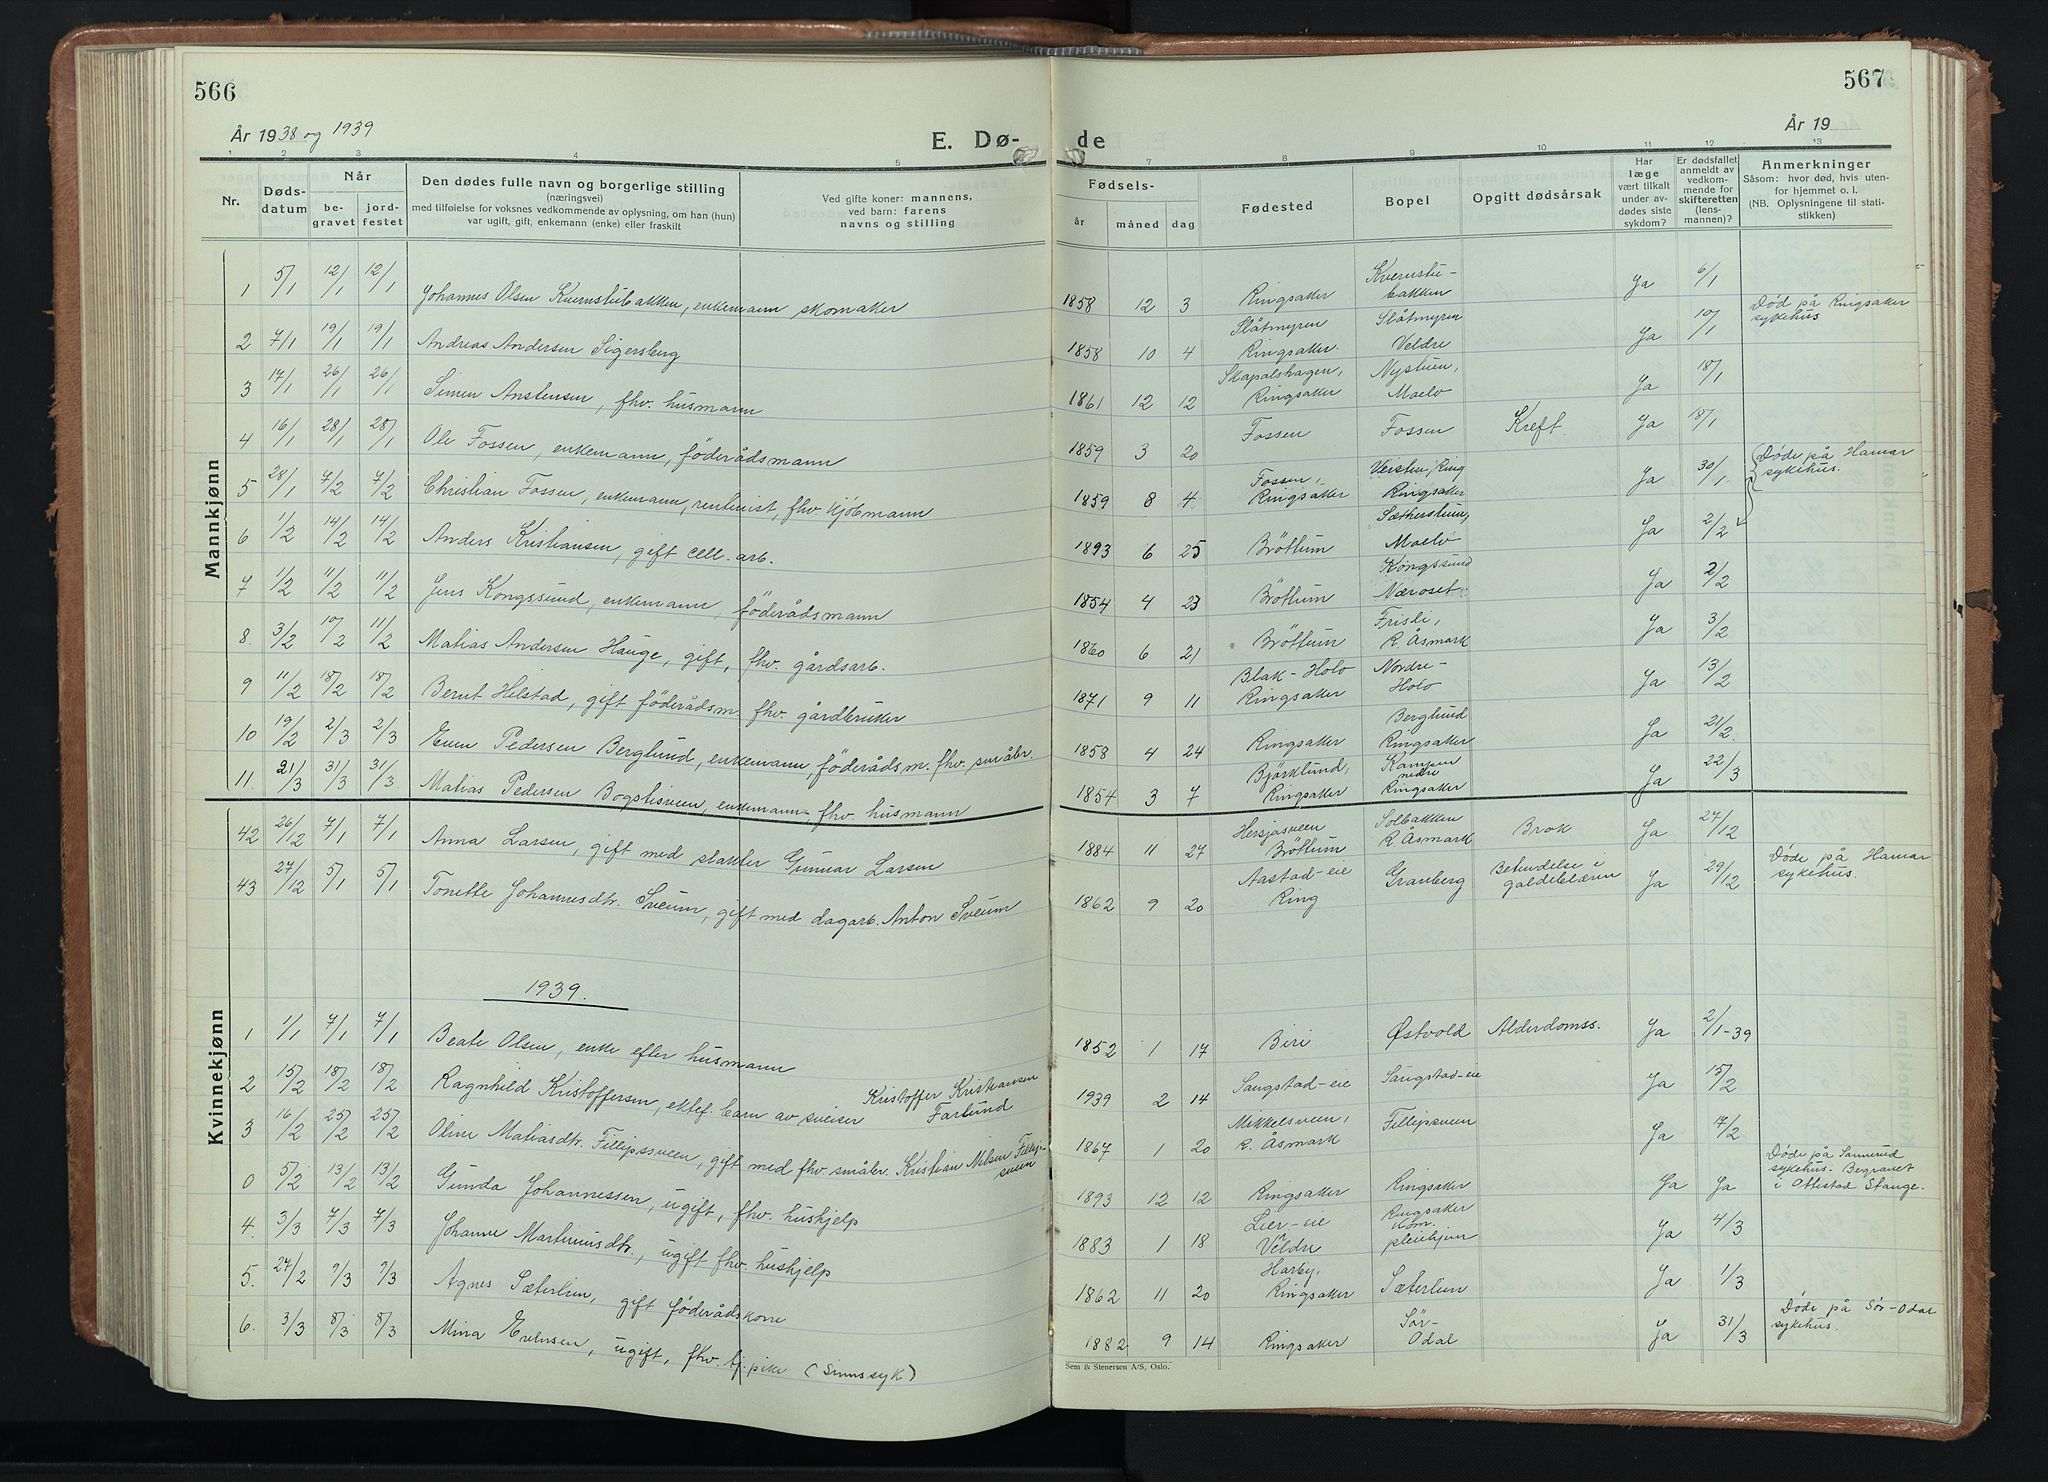 566
År 1938 og 1939
E. Dø-
1 2 3 4 5
Nr.
Døds-
datum
Når
be-
gravet
jord-
festet
Den dødes fulle navn og borgerlige stilling
(næringsvei)
med tilføielse for voksnes vedkommende av oplysning, om han (hun)
var ugift, gift, enkemann (enke) eller fraskilt
Ved gifte koner: mannens,
ved barn: farens
navns og stilling
Mannkjønn
1 5/1 12/1 12/1 Johannes Olsen Kvernstubakken, enkemann skomaker
2 7/1 19/1 19/1 Andreas Andersen Sigersberg
3 17/1 26/1 26/1 Simen Anstensen, fhv. husmann
4 16/1 28/1 28/1 Ole Fossen, enkemann, föderådsmann
5 28/1 7/2 7/2 Christian Fossen, enkemann, rentenist, fhv. kjöbmann
6 1/2 14/2 14/2 Anders Kristiansen, gift cell. arb.
7 1/2 11/2 11/2 Jens Kongssund, enkemann, föderådsmann
8. 3/2 10/2 11/2 Matias Andersen Hauge, gift, fhv. gårdsarb.
9 11/2 18/2 18/2 Bernt Helstad, gift föderådsm. fhv. gårdbruker
10 19/2 2/3 2/3 Even Pedersen Berglund, enkemann, föderådsm. fhv. småbr.
11. 21/3 31/3 31/3 Matias Pedersen Bogstisveen, enkemann, fhv. husmann
Kvinnekjønn
42 26/12 7/1 7/1 Anna Larsen, gift med slakter Gunnar Larsen
43 27/12 5/1 5/1 Tonette Johannesdtr. Sveum, gift med dagarb. Anton Sveum
1939.
1 1/1 7/1 7/1 Beate Olsen, enke efter husmann
2 15/2 18/2 18/2 Ragnhild Kristoffersen, ektef. barn av sveiser Kristoffer Kristiansen
Farlund
3 16/2 25/2 25/2 Oline Matiasdtr. Fillipssveen, gift med fhv. småbr. Kristian Nilsen Fillip-
sveen
0 5/2 13/2 13/2 Gunda Johannessen, ugift, fhv. hushjelp
4. 3/3 7/3 7/3 Johanne Martinusdtr., ugift fhv. hushjelp
5. 27/2 9/3 9/3 Agnes Sæterlien, gift föderådskone
6. 3/3 8/3 8/3 Mina Evensen, ugift, fhv. tj. pike (Sinnssyk)
567
År 19
de
7 8 9 10 11 12 13
Fødsels-
år måned dag
Fødested
Bopel
Opgitt dødsårsak
Har
læge
vært tilkalt
under av-
dødes siste
sykdom?
Er dødsfallet
anmeldt av
vedkom-
mende for
skifteretten
(lens-
mannen)?
Anmerkninger
Såsom: hvor død, hvis uten-
for hjemmet o. l.
(NB. Oplysningene til stati-
stikken)
1858 12 3 Ringsaker Kvernstu-
bakken Ja 6/1
Død på Ringsaker
sykehus
1858 10 4 Slåtmyren
Ringsaker. Slåtmyren
Veldre Ja 10/1
1861 12 12 Skapalshagen,
Ringsaker Nystuen,
Moelv Ja 18/1
1859 3 20 Fossen Fossen Kreft. Ja 18/1
1859 8 4 Fossen,
Ringsaker Veisten, Ring
Ringsaker Ja 30/1
Døde på Hamar
sykehus.
1893 6 25 Bröttum Sætherstuen,
Moelv Ja 2/2
1854 4 23 Bröttum Kongssund
Næroset. Ja 2/2
1860 6 21 Bröttum Frisli,
R. Åsmark Ja 3/2
1871 9 11 Blak-Holo
Ringsaker Nordre-
Holo Ja 13/2
1858 4 24 Ringsaker Berglund
Ringsaker Ja 21/2
1854 3 7 Björklund,
Ringsaker Kampen
nedre
Ringsaker Ja 22/3
1884 11 27 Hersjasveen
Bröttum Solbakken
R. Åsmark Brok Ja 27/12
1862 9 20 Aastad-eie
Ring Granberg Betendelse i
galdeblæren Ja 29/12 Døde på Hamar
sykehus.
1852 1 17 Biri Østvold Alderdomss. Ja 2/1-39
1939 2 14 Saugstad-eie Saugstad-eie Ja 15/2
1867 1 20 Mikkelsveen,
R. Åsmark Fillipsveen Ja 17/2
1893 12 12 Ringsaker Ringsaker Ja Ja
Døde på Sannerud
sykehus. Begravet
i Ottestad Stange.
1883 1 18 Lier-eie
Veldre Ringsaker
kom.
pleiehjem Ja 4/3
1862 11 20 Harby,
Ringsaker Sæterlien Ja 1/3
1882 9 14 Ringsaker Sör-
Odal Ja 31/3 Døde på Sör-Odal
sykehus.
Sem & Stenersen A/S, Oslo.